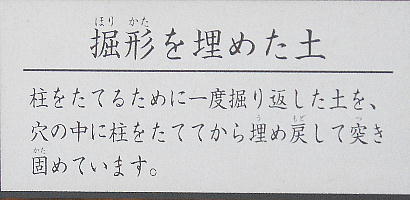 掘形を埋めた土
柱をたてるために一度掘り返した土を、
穴の中に柱をたててから埋め戻して突き
固めています。